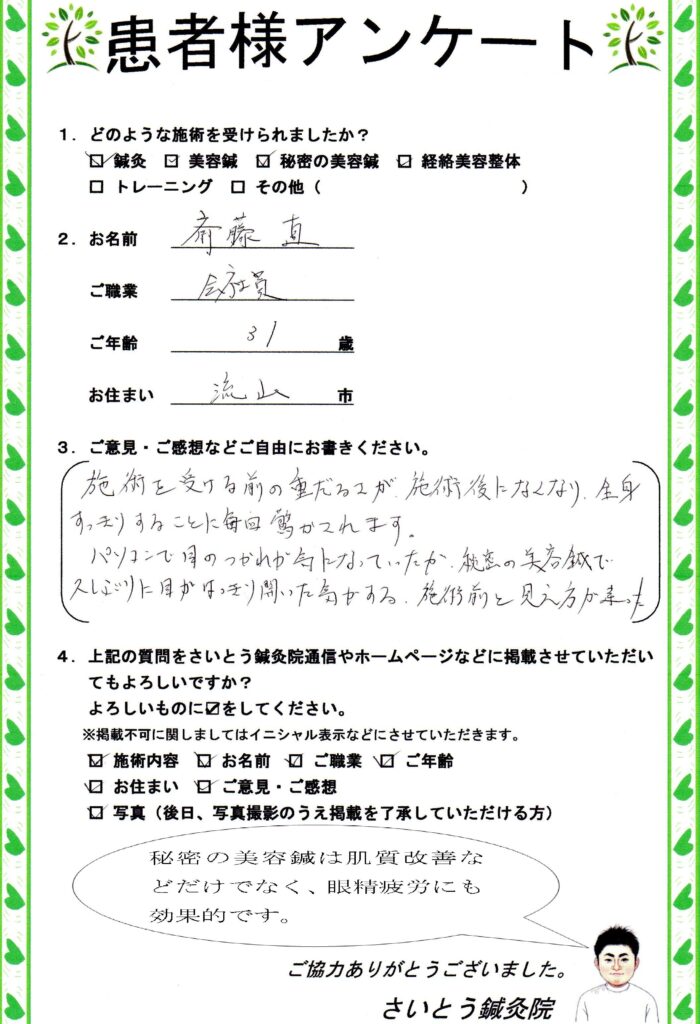 患者様アンケート
1. どのような施術を受けられましたか？
☑ 鍼灸 □ 美容鍼 ☑ 秘密の美容鍼 □ 経絡美容整体
□ トレーニング □ その他（ ）
2. お名前 斎藤 直
ご職業 会社員
ご年齢 31 歳
お住まい 流山 市
3. ご意見・ご感想などご自由にお書きください。
施術を受ける前の重だるさが、施術後になくなり、全身
すっきりすることに毎回驚かされます。
パソコンで目のつかれが気になっていたが、秘密の美容鍼で
久しぶりに目がはっきり開いた気がする。施術前と見え方が
4. 上記の質問をさいとう鍼灸院通信やホームページなどに掲載させていただい
てもよろしいですか？
よろしいものに☑をしてください。
※掲載不可に関しましてはイニシャル表示などにさせていただきます。
☑ 施術内容 ☑ お名前 ☑ ご職業 ☑ ご年齢
☑ お住まい ☑ ご意見・ご感想
□ 写真（後日、写真撮影のうえ掲載を了承していただける方）
秘密の美容鍼は肌質改善な
どだけでなく、眼精疲労にも
効果的です。
ご協力ありがとうございました。
さいとう鍼灸院